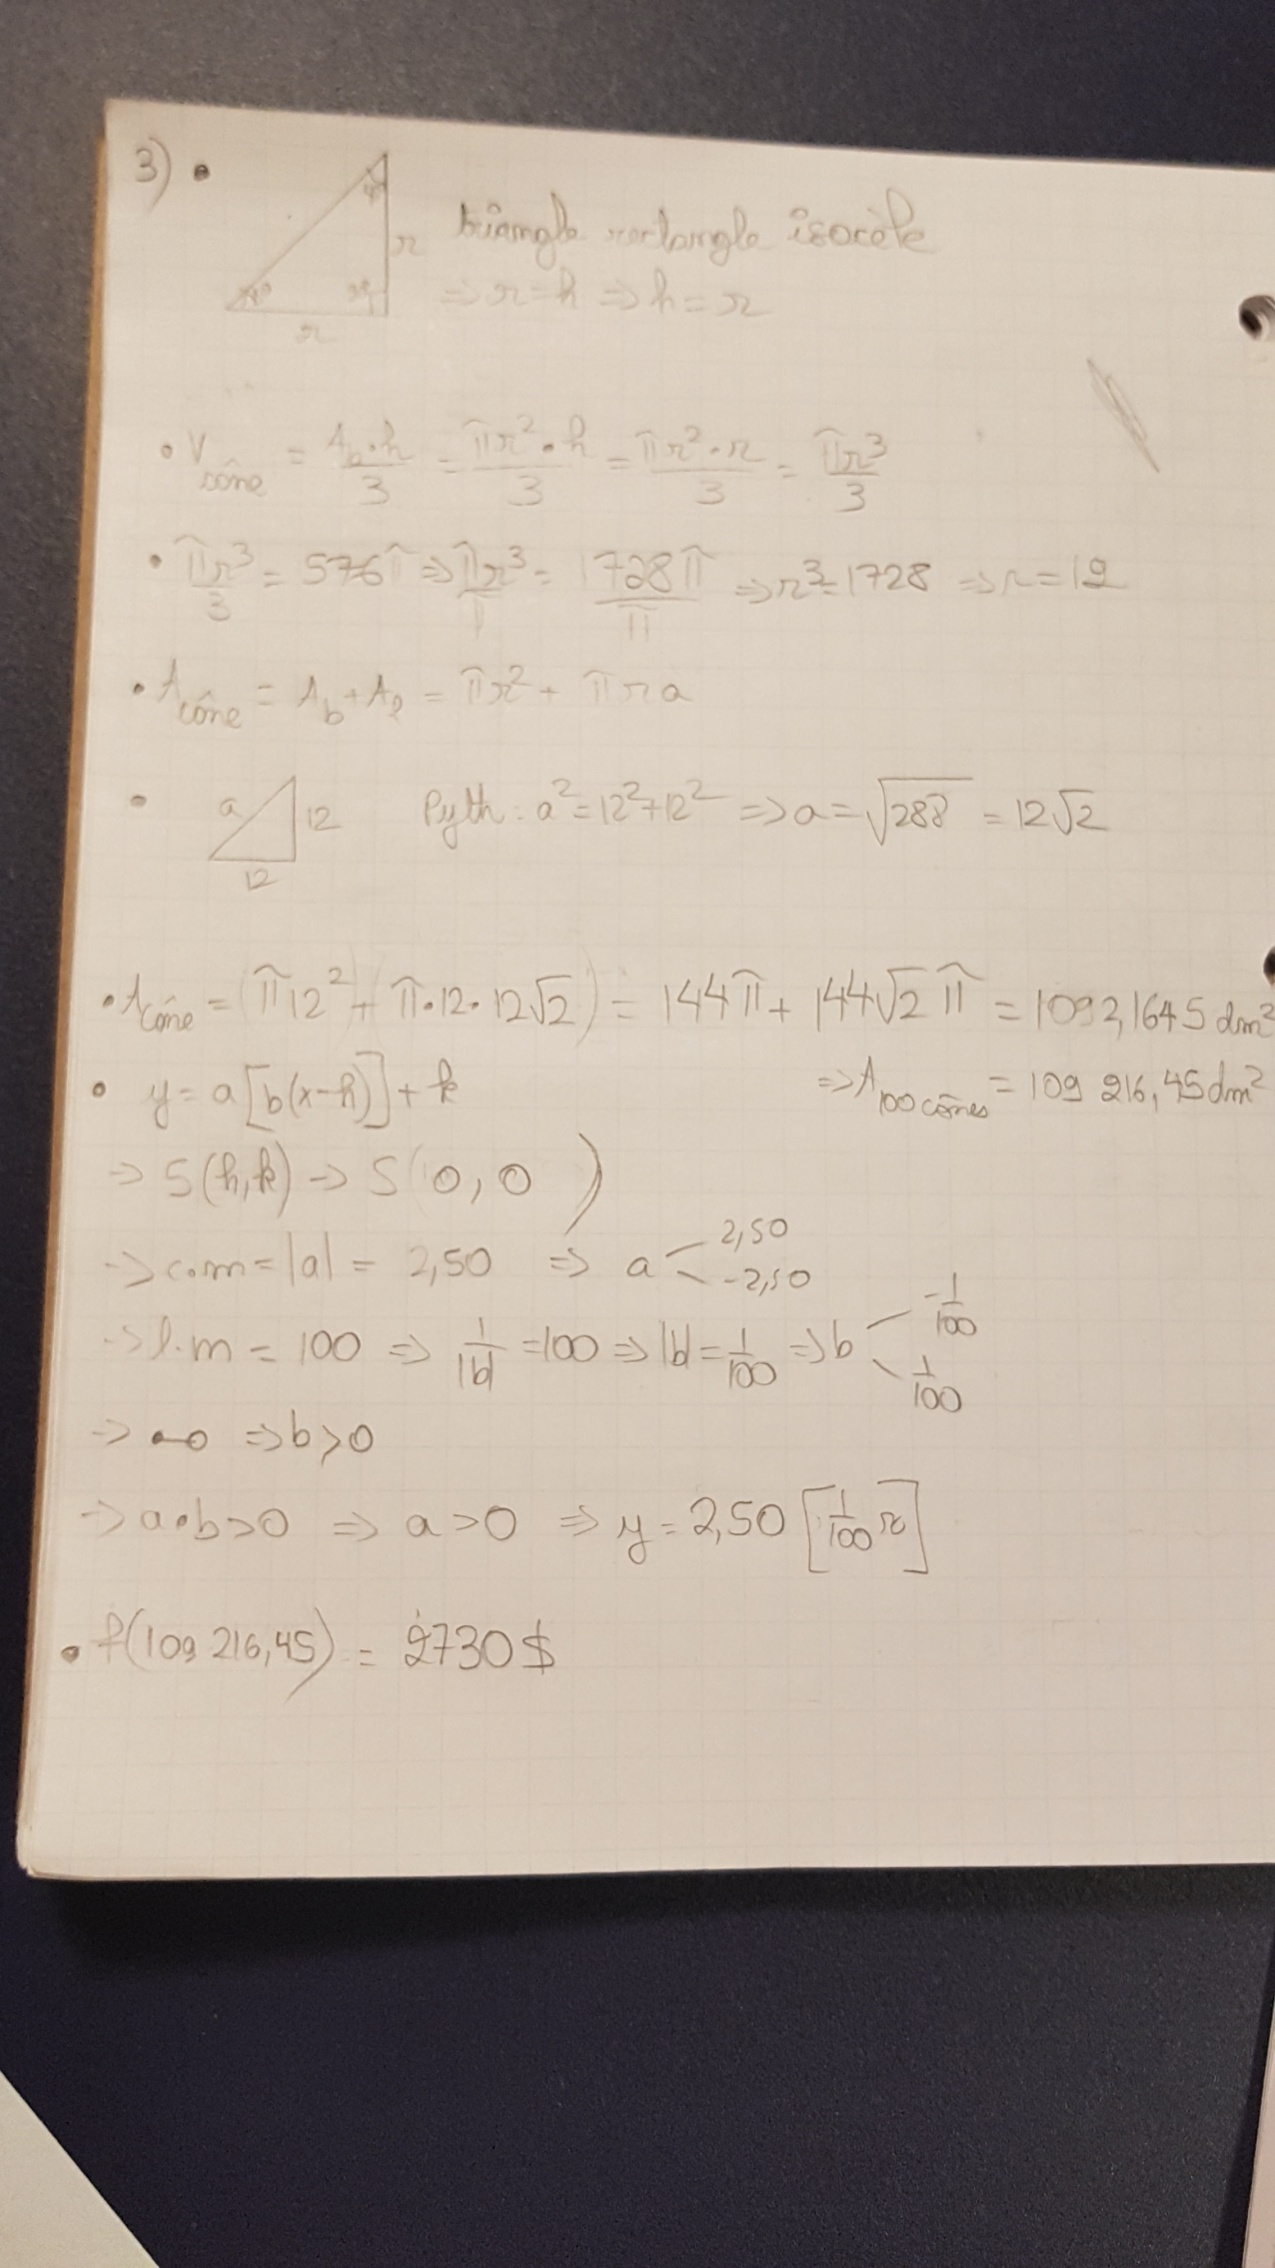 3) •
r
triangle rectangle isocèle
r
⇒ r=h ⇒ h=r
• V cône = Ab•h/3 = πr²•h/3 = πr²•r/3 = πr³/3
• πr³/3 = 576π ⇒ πr³/π = 1728π/π ⇒ r³=1728 ⇒ r=12
• A cône = Ab+Al = πr² + πra
• a 12 12 Pyth: a²=12²+12² ⇒ a=√288 = 12√2
• A cône = (π12² + π•12•12√2) = 144π + 144√2π = 1092,1645 dm²
⇒ A 100 cônes = 109 216,45 dm²
• y = a[b(x-h)]+k
→ S(h,k) → S(0,0)
→ c.m = |a| = 2,50 ⇒ a 2,50 -2,50
→ l.m = 100 ⇒ 1/|b| = 100 ⇒ |b| = 1/100 ⇒ b -1/100 1/100
→ •-o ⇒ b>0
→ a•b>0 ⇒ a>0 ⇒ y = 2,50 [1/100 x]
• f(109 216,45) = 2730$